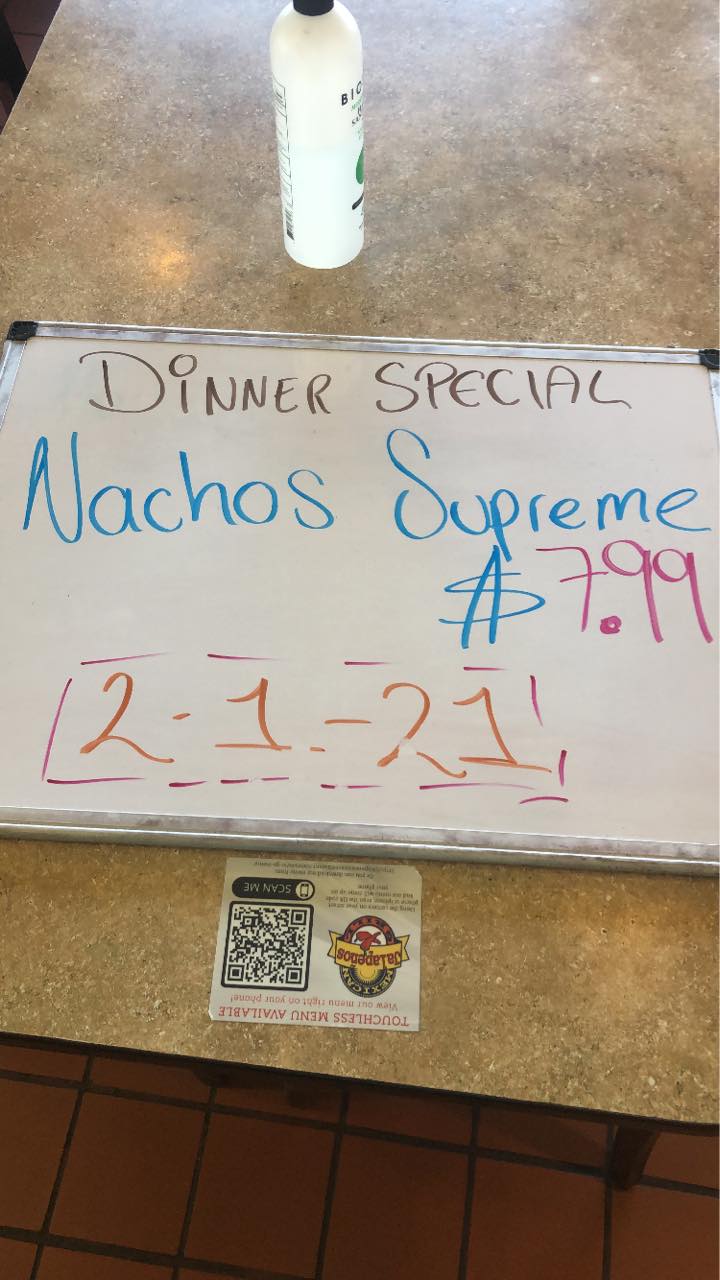 BIO
DINNER SPECIAL
Nachos Supreme
$7.99
2-1-21
TOUCHLESS MENU AVAILABLE
View our menu right on your phone!
MEXICAN
Jalapeños
GRILL
SCAN ME